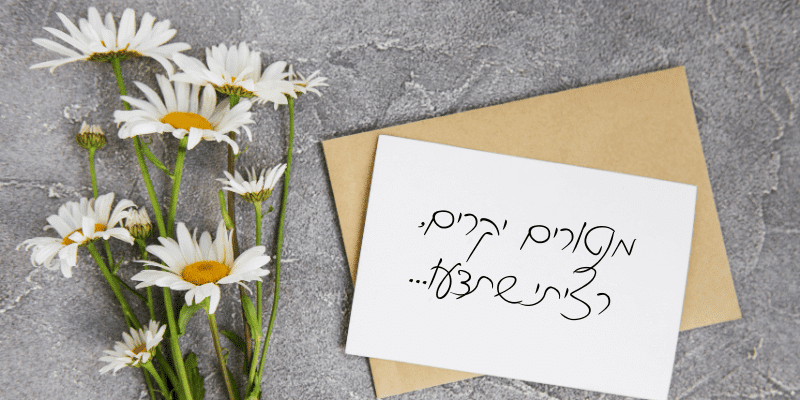 מנטורים יקרים,
רציתי שתדעו...